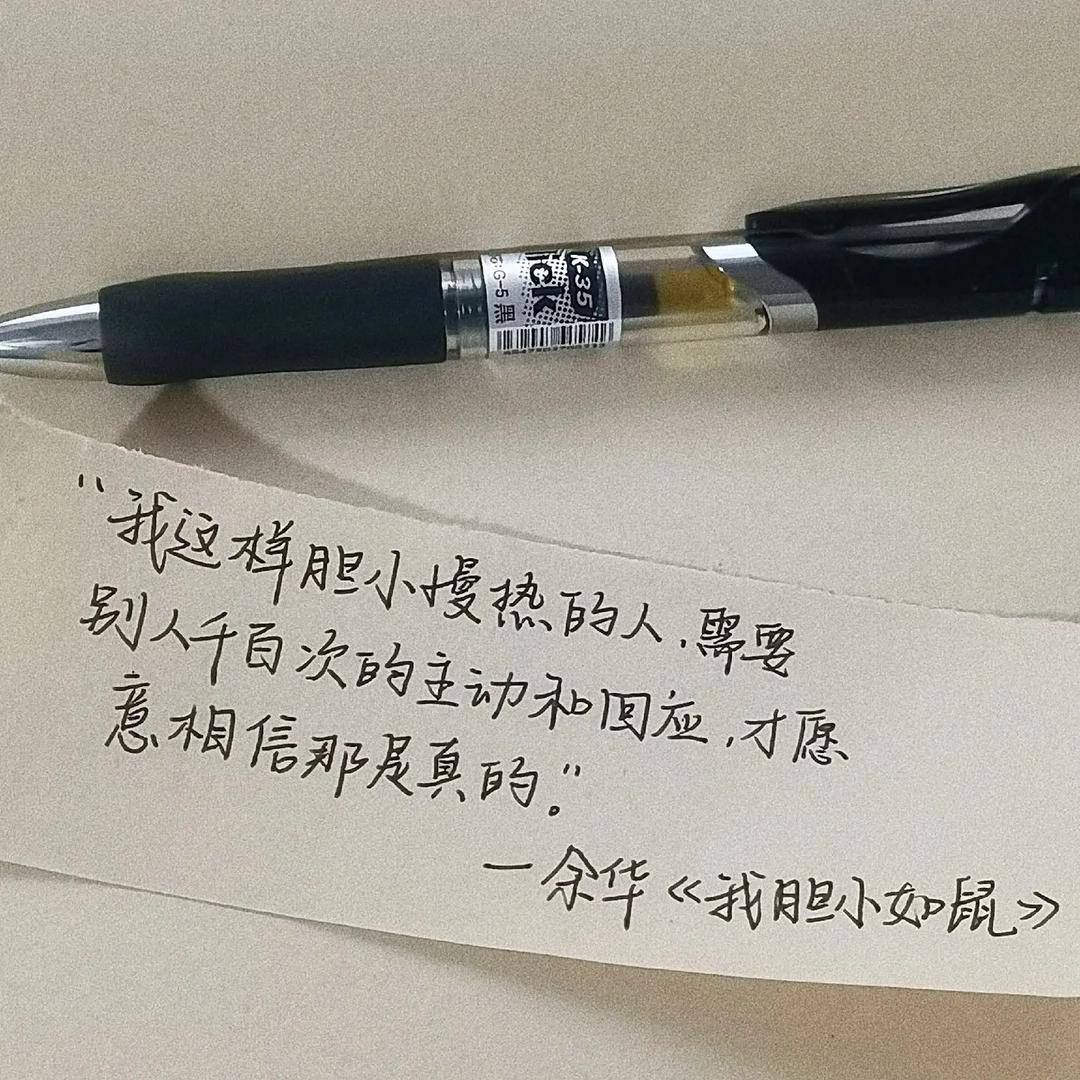 K-35
G-5 黑
“我这样胆小慢热的人,需要
别人千百次的主动和回应,才愿
意相信那是真的。”
—余华《我胆小如鼠》